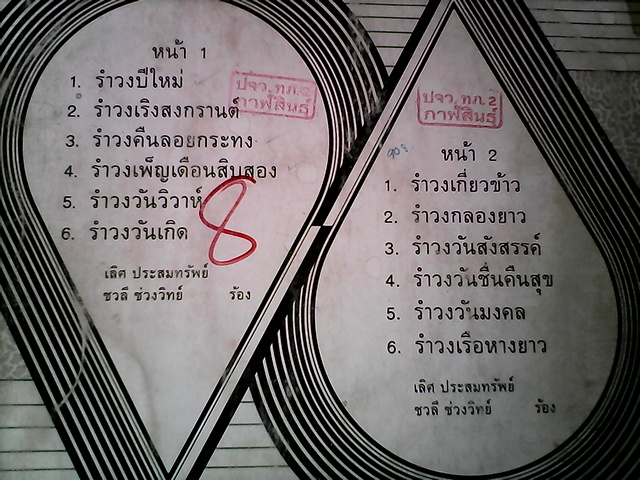 หน้า 1
1. รำวงปีใหม่
2. รำวงเริงสงกรานต์
3. รำวงคืนลอยกระทง
4. รำวงเพ็ญเดือนสิบสอง
5. รำวงวันวิวาห์
6. รำวงวันเกิด
เลิศ ประสมทรัพย์
ชวลี ช่วงวิทย์ ร้อง
ปจว. ทภ. 2
กาฬสินธุ์
8
ปจว. ทภ. 2
กาฬสินธุ์
หน้า 2
1. รำวงเกี่ยวข้าว
2. รำวงกลองยาว
3. รำวงวันสังสรรค์
4. รำวงวันชื่นคืนสุข
5. รำวงวันมงคล
6. รำวงเรือหางยาว
เลิศ ประสมทรัพย์
ชวลี ช่วงวิทย์ ร้อง